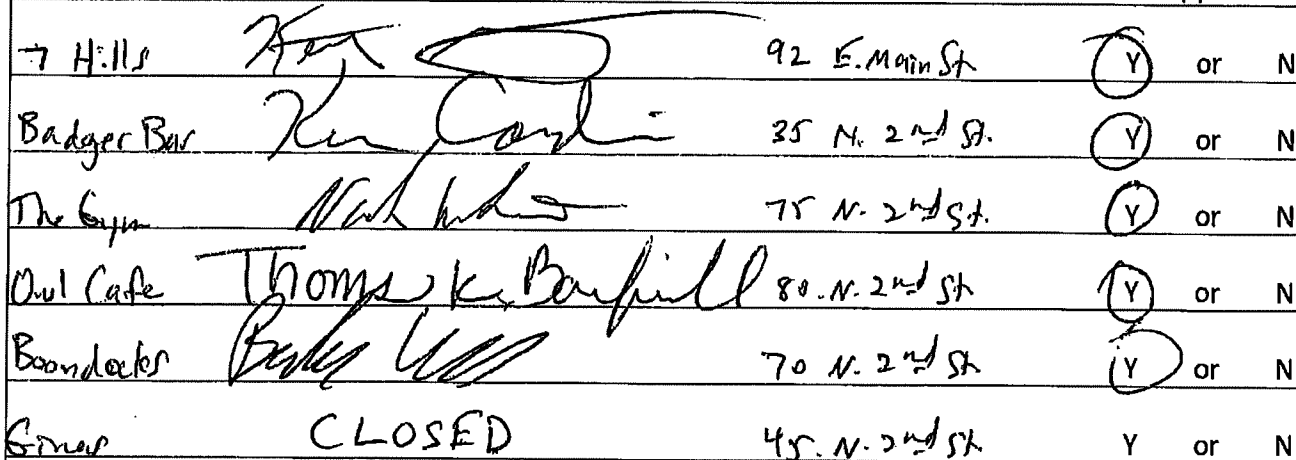 7 Hills 92 E. Main St. Y or N
Badger Bar 35 N. 2nd St. Y or N
The Gym 75 N. 2nd St. Y or N
Owl Cafe Thomas K. 80. N. 2nd St Y or N
Boondocks 70 N. 2nd St Y or N
CLOSED 45. N. 2nd St. Y or N